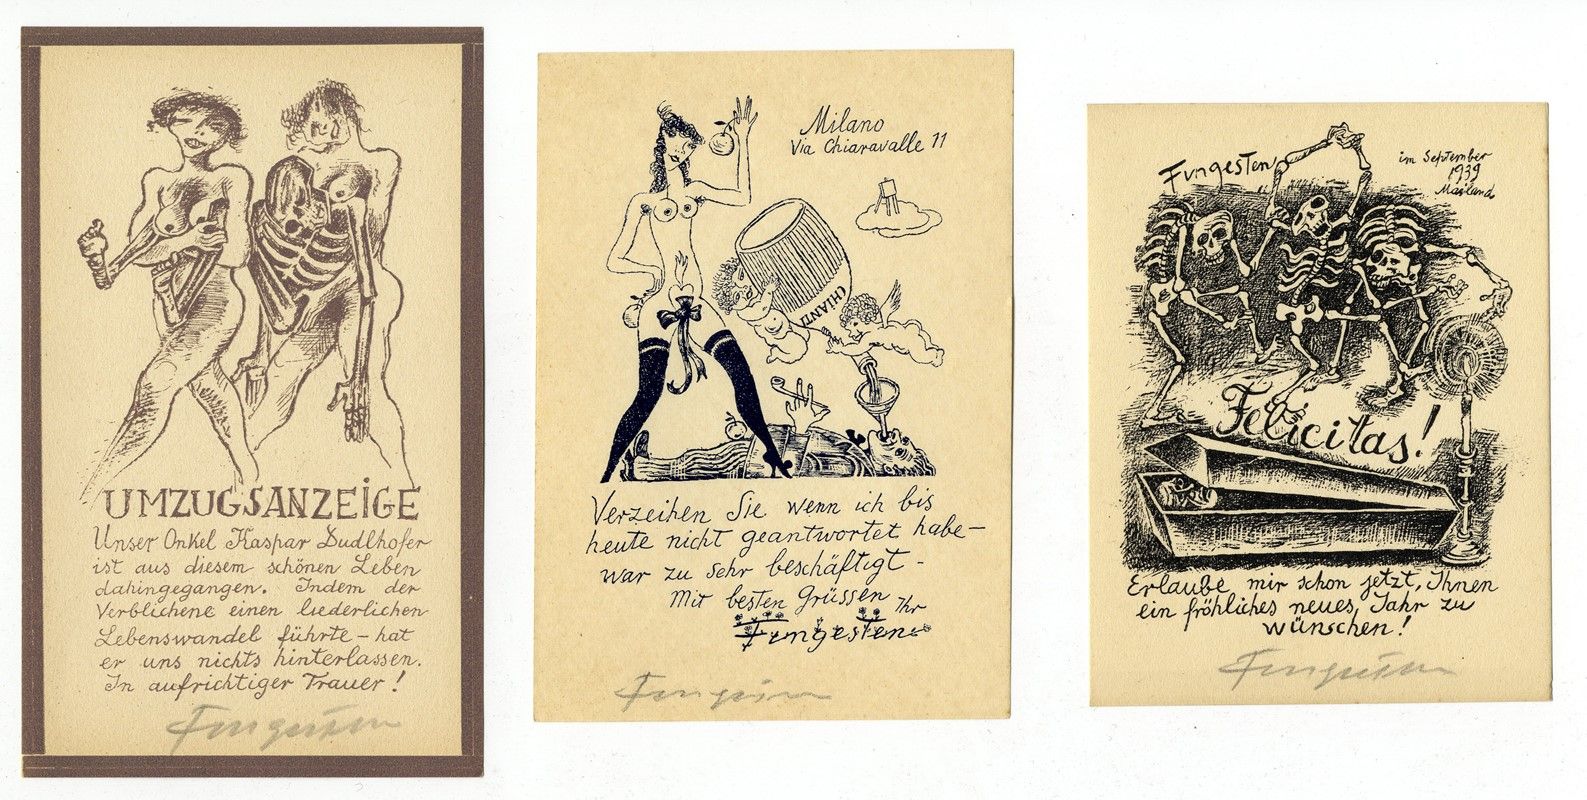 UMZUGSANZEIGE
Unser Onkel Kaspar Dudlhofer
ist aus diesem schönen Leben
dahingegangen. Indem der
Verblichene einen liederlichen
Lebenswandel führte – hat
er uns nichts hinterlassen.
In aufrichtiger Trauer!
Fingesten
Milano
Via Chiaravalle 11
CHIANTI
Verzeihen Sie wenn ich bis
heute nicht geantwortet habe –
war zu sehr beschäftigt –
Mit besten Grüssen
Ihr
Fingesten
Fingesten
Fingesten
im September
1939
Mailand
Felicitas!
Erlaube mir schon jetzt, Ihnen
ein fröhliches neues Jahr zu
wünschen!
Fingesten